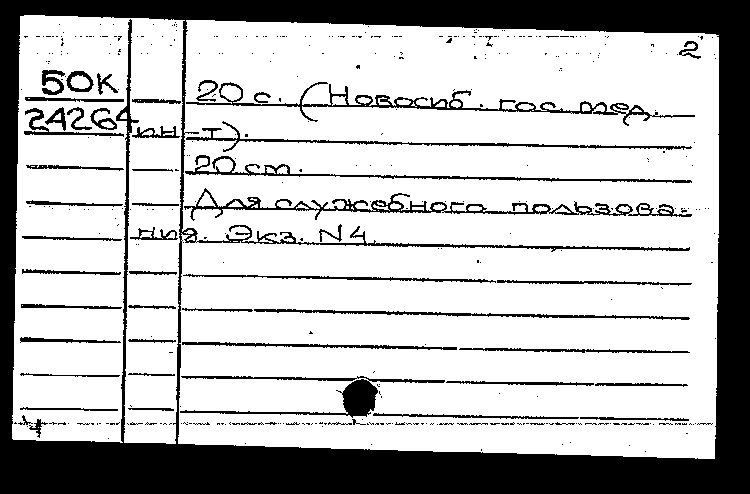 2
50К 20 с. (Новосиб. гос. мед.
24264 ин-т).
20 см.
Для служебного пользова-
ния. Экз. N4
4